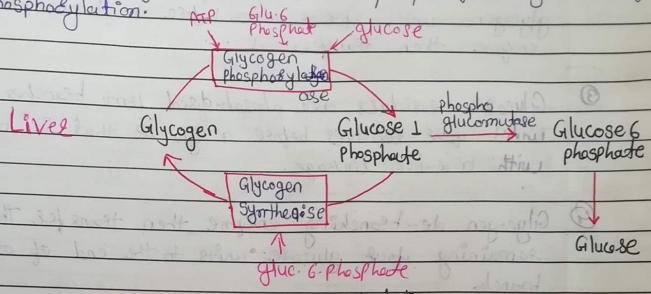 phosphorylation.
ATP
Glu-6
Phosphat
glucose
Glycogen
phosphorylase
ase
Liver
Glycogen
Glucose 1
phosphate
phospho
glucomutase
Glucose 6
phosphate
Glycogen
Synthease
gluc-6-phosphate
Glucose